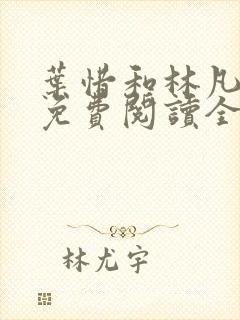 葉惜和林凡
免費閱讀全
林尤宇